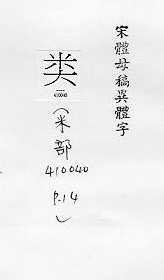 宋體母稿異體字
类
410040
(米部
410040
P.14
)